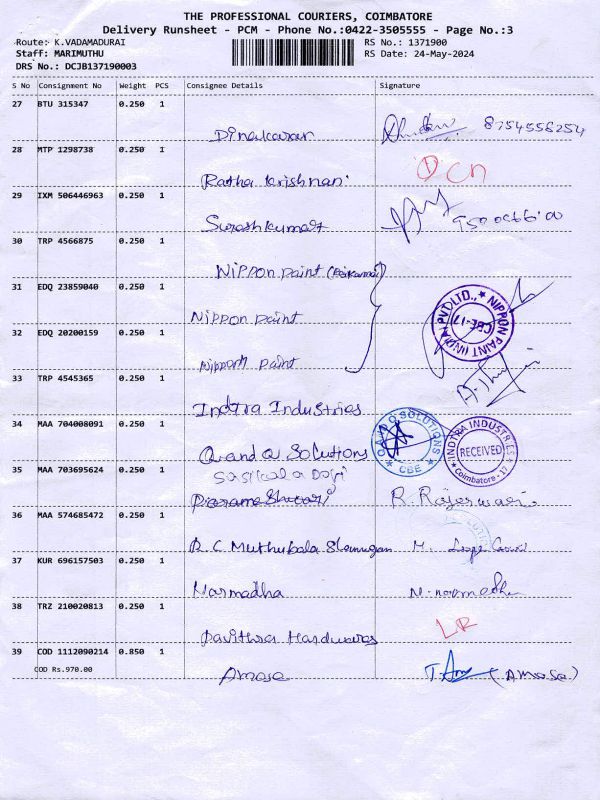 THE PROFESSIONAL COURIERS, COIMBATORE
Delivery Runsheet - PCM - Phone No.:0422-3505555 - Page No.:3
Route: K.VADAMADURAI RS No.: 1371900
Staff: MARIMUTHU RS Date: 24-May-2024
DRS No.: DCJB137190003
S No Consignment No Weight PCS Consignee Details Signature
27 BTU 315347 0.250 1
Dinakaran 8754556254
28 MTP 1298738 0.250 1
Ratha krishnan CN
29 IXM 506446963 0.250 1
Suresh kumar
30 TRP 4566875 0.250 1
Nippon paint
31 EDQ 23859040 0.250 1
Nippon paint
NIPPON PAINT (IND) PVT LTD., CBE-17
32 EDQ 20200159 0.250 1
Nippon paint
33 TRP 4545365 0.250 1
Indtra Industries
34 MAA 704008091 0.250 1
Q and Q Solutions
Q AND Q SOLUTIONS CBE
INDTRA INDUSTRIES RECEIVED Coimbatore - 17
35 MAA 703695624 0.250 1
Sasikala Devi
R. Rajeswari
36 MAA 574685472 0.250 1
R.C. Muthubala
37 KUR 696157503 0.250 1
Narmadha N. narmadha
38 TRZ 210020813 0.250 1
Pavithra Hardwares LR
39 COD 1112090214 0.850 1
COD Rs.970.00
Amose (AMOSE)